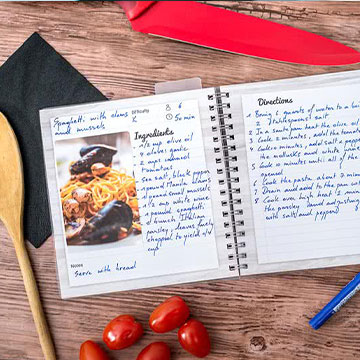 Spaghetti with clams
and mussels
Difficulty
6
50 min
Ingredients
1/4 cup olive oil
4 garlic
2 cups canned
tomatoes
Sea salt, black pepper
1 pound Manila clams
1 pound small mussels
1/2 cup white wine
1 pound spaghetti
1 bunch Italian
parsley, leaves finely
chopped to yield 1/4
cup
Notes
Serve with bread
Directions
1 Boing 6 quarts of water to a
2 Tablespoons salt
2 In a sauté pan heat the olive oil
3 Cook 2 minutes, add the
4 Cook 10 minutes, add salt &
the mollusks and white
5 Cook 10 minutes until all
opened
6 Cook the pasta about 7 minutes
7 Drain and add to the pan
8 Cook over high heat
the parsley and
with salt and pepper